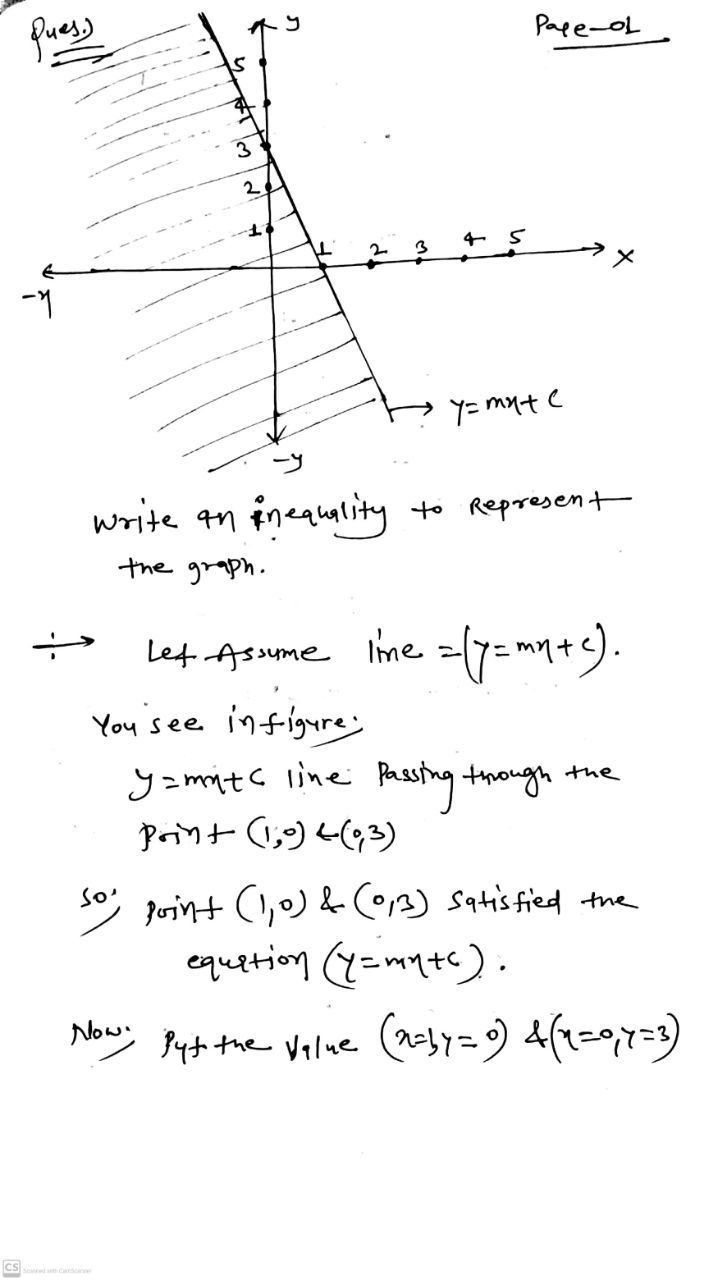 Ques.)
Page-01
y
5
4
3
2
1
1 2 3 4 5
x
-x
y=mx+c
-y
Write an inequality to Represent
the graph.
Let Assume line =(y=mx+c).
You see in figure;
y=mx+c line Passing through the
Point (1,0) & (0,3)
So; point (1,0) & (0,3) satisfied the
equation (y=mx+c).
Now; Put the value (x=1,y=0) & (x=0,y=3)
CS Scanned with CamScanner